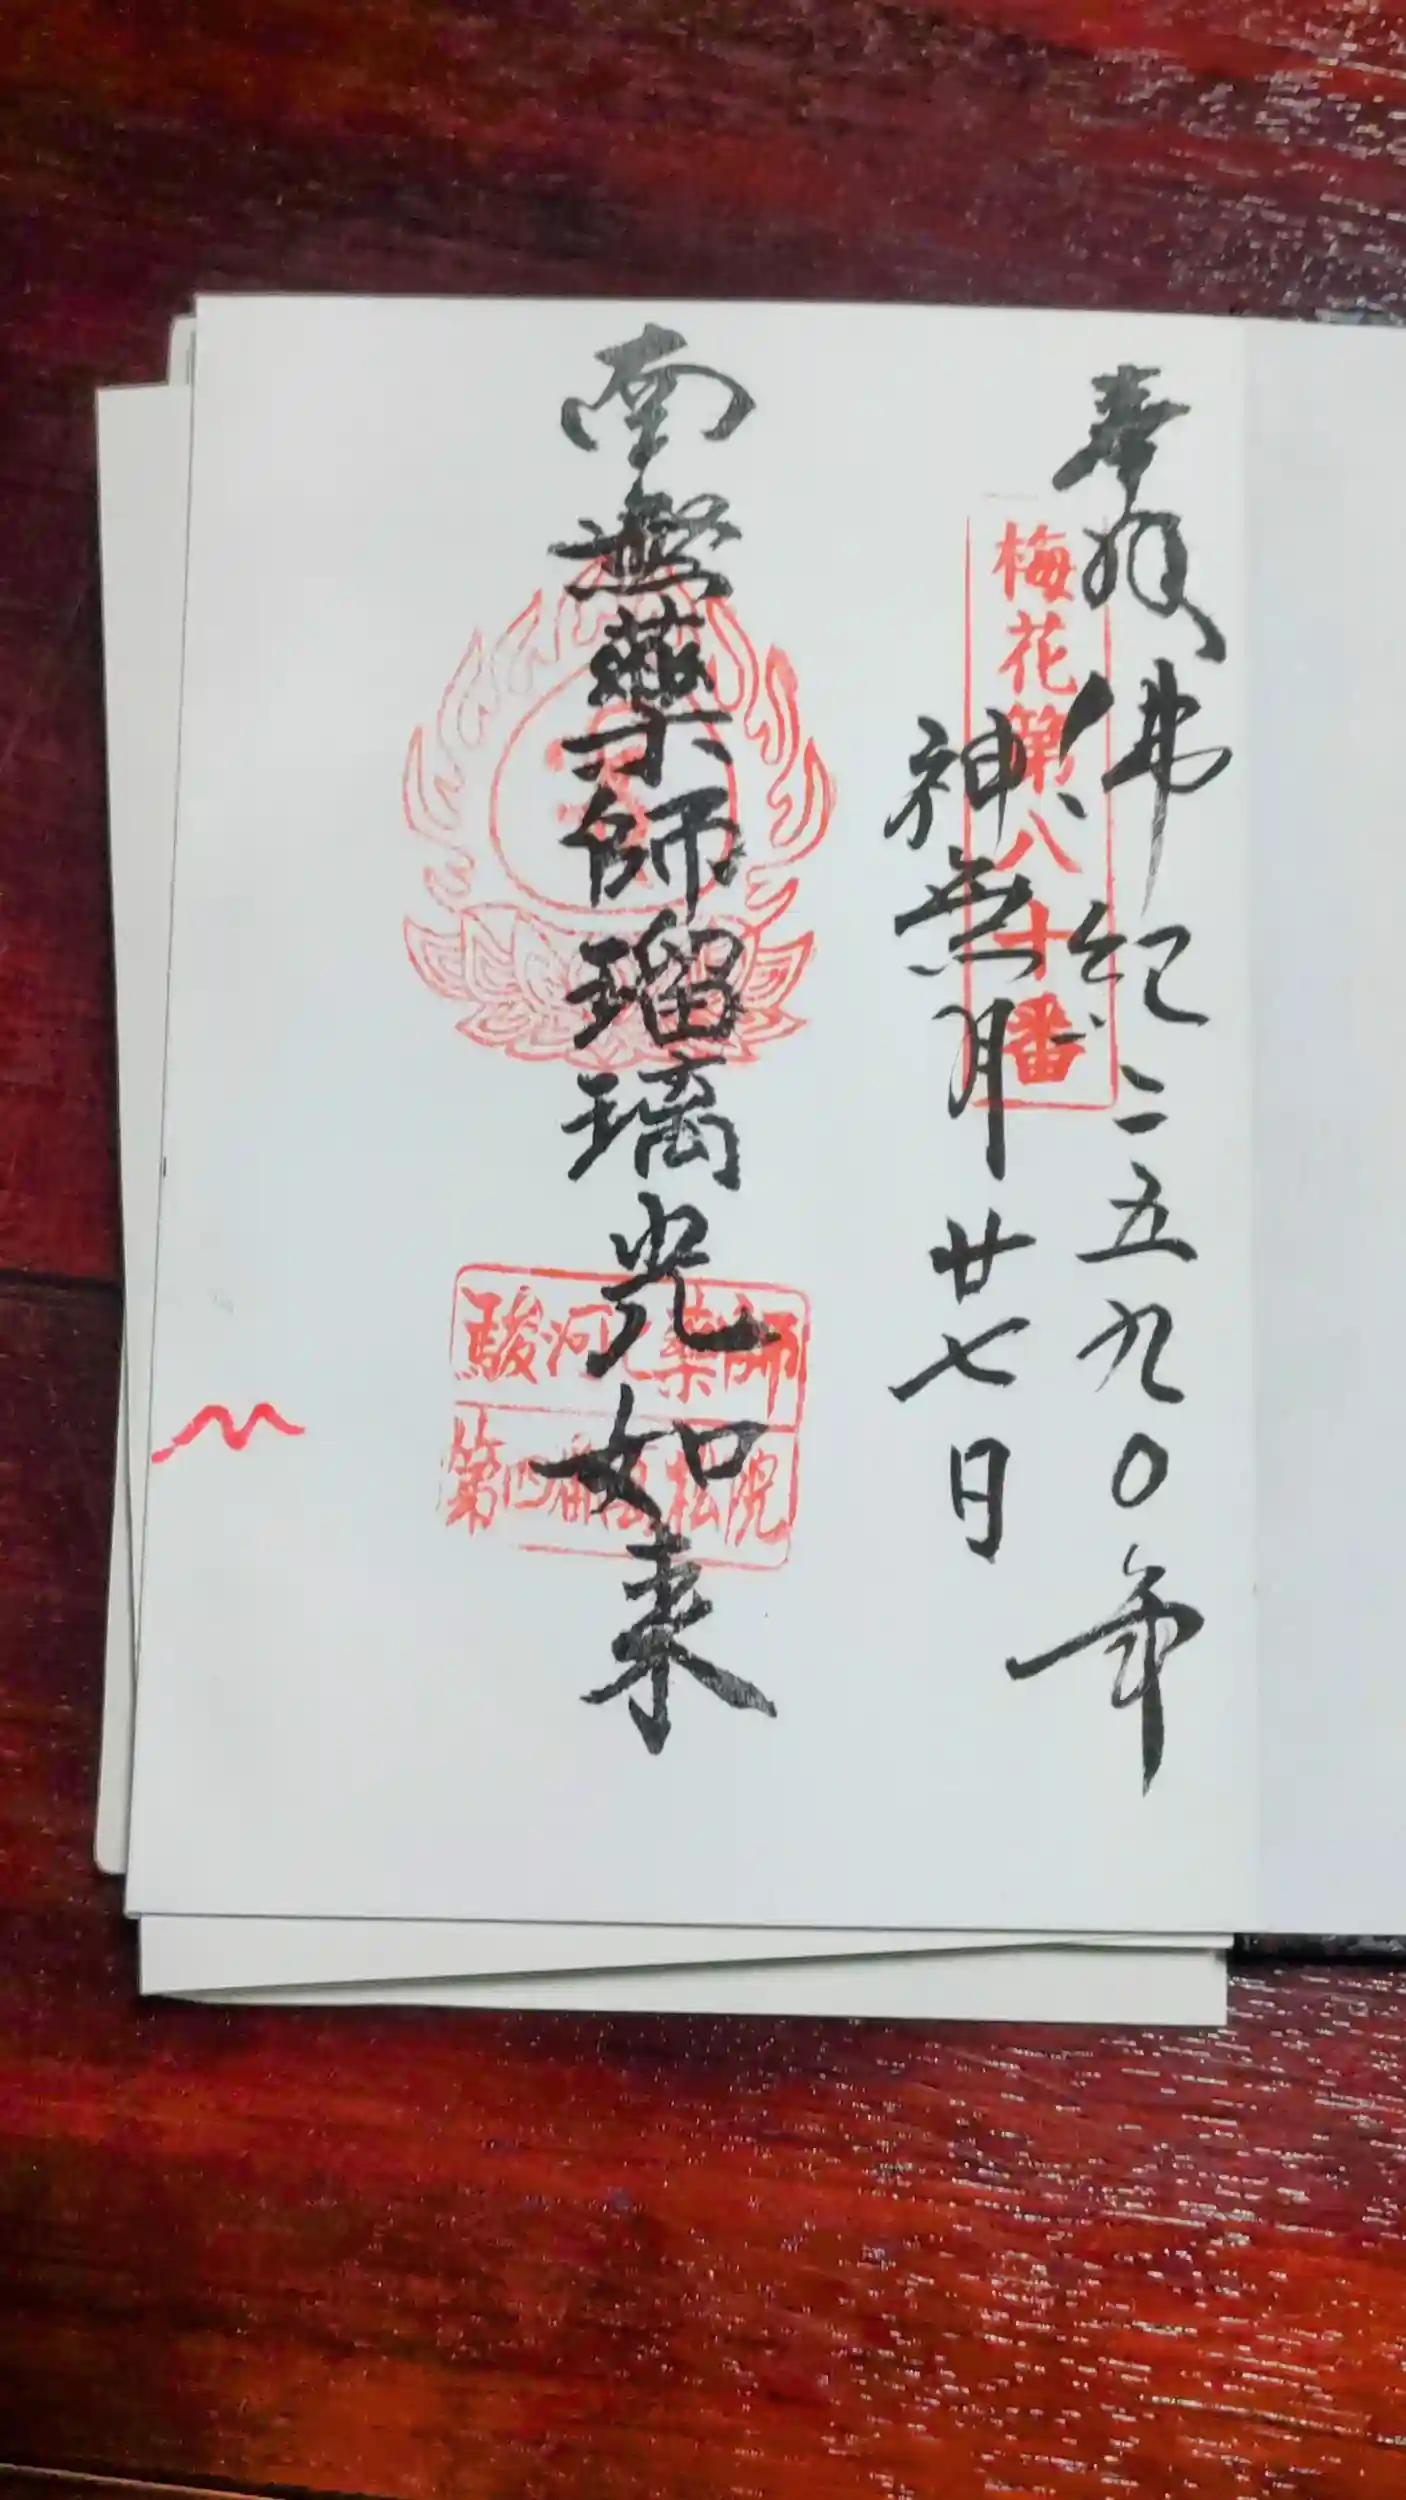 奉拜 佛紀二五九〇年
神無月廿七日
梅花第八十番
南無藥師瑠璃光如来
駿河 藥師
第四番 松院